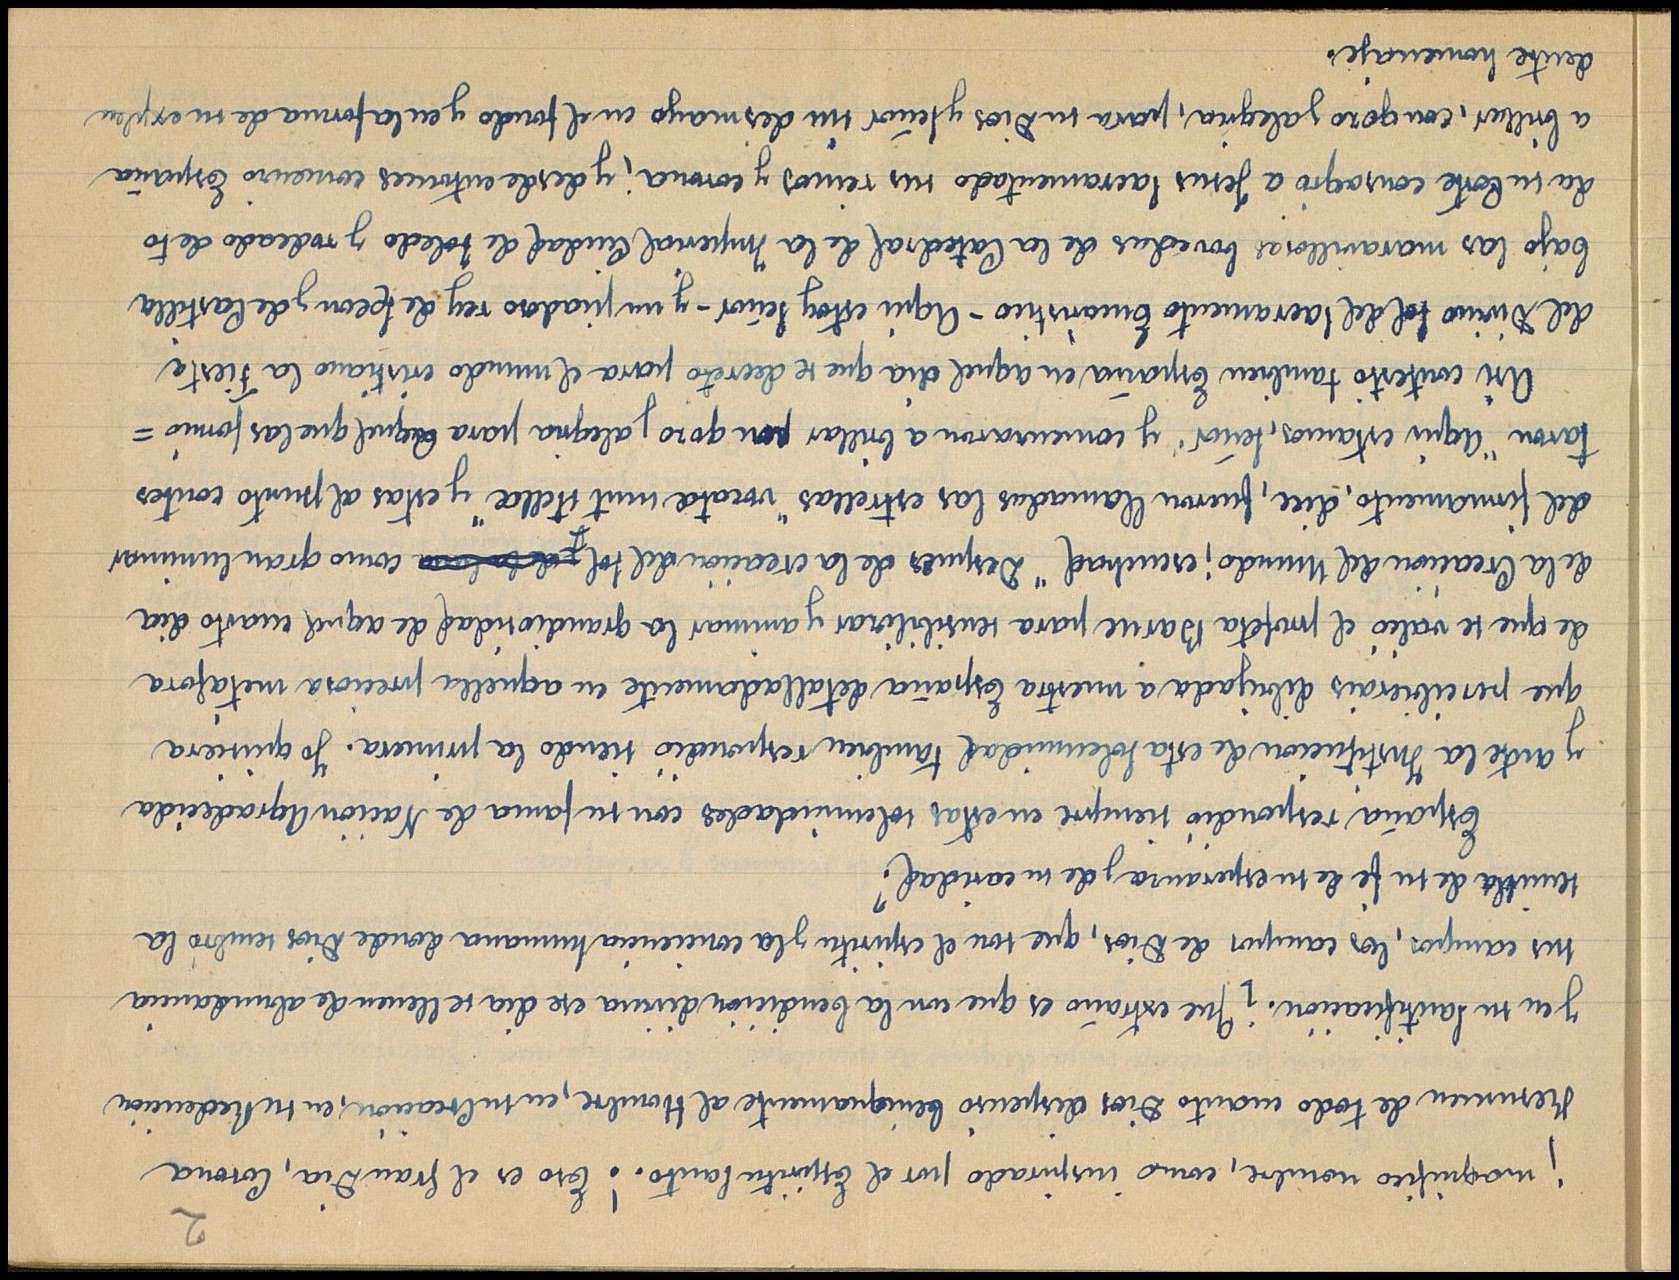 2
¡ magnifico nombre, como inspirado por el Espiritu Santo. ! Eso es el gran Dia, Corona
Resumen de todo cuanto Dios dispensó benignamente al Hombre, en su Creación, en su Redencion
y en su Santificacion. ¿ Que extraño es que con la bendición divina ese dia se llenen de abundancia
sus campos, los campos de Dios, que son el espiritu y la conciencia humana donde Dios sembró la
semilla de su fe de su esperanza y de su caridad?
España respondió siempre en estas solemnidades con su fama de Nación Agradecida
y ante la Institucion de esta solemnidad tambien respondio siendo la primera. Yo quisiera
que percibierais dibujada a nuestra España detalladamente en aquella preciosa metafora
de que se valió el profeta Baruc para sensibilizar y animar la grandiosidad de aquel cuarto dia
de la Creacion del Mundo; escuchad "Despues de la creación del sol y de la luna como gran luminar
del firmamento, dice, fueron llamadas las estrellas "vocatæ sunt stellæ" y estas al punto contes
taron "Aqui estamos, señor" y comenzaron a brillar con gozo y alegria para Aquel que las formó =
Asi contestó tambien España en aquel dia que se decretó para el mundo cristiano la Fiesta
del Divino Sol del Sacramento Eucaristico - Aqui estoy Señor - y un piadoso rey de Leon y de Castilla
bajo las maravillosas bovedas de la Catedral de la Imperial Ciudad de Toledo y rodeado de to
da su Corte consagró a Jesus Sacramentado sus reinos y corona; y desde entonces comenzo España
a brillar, con gozo y alegria, para su Dios y Señor sin desmayo en el fondo y en la forma de su esplen
dente homenaje.